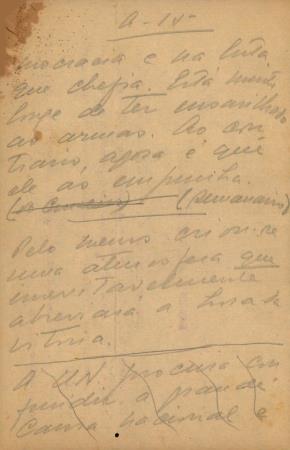 A-15-
mocracia e na luta
que chefia. Está muito
longe de ter ensarilhado
as armas. Ao con-
trário, agora é que
ele as empunha.
(semanário)
Pelo menos criou-se
uma atmosfera que
inevitavelmente
abreviará a hora da
vitória.
A UN procura con-
fundir a grande
causa nacional e